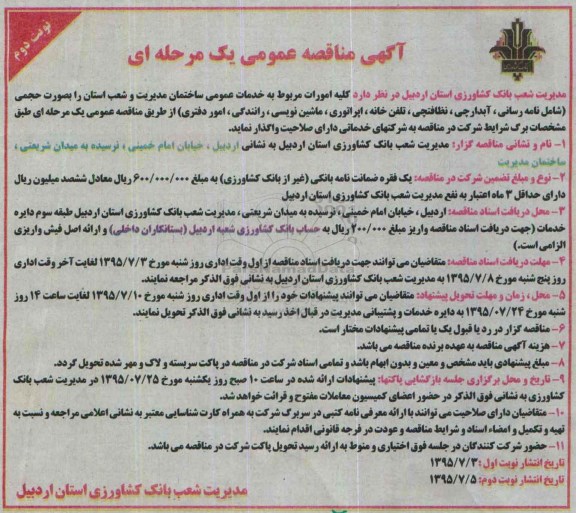 نوبت دوم
آگهی مناقصه عمومی یک مرحله ای
مدیریت شعب بانک کشاورزی استان اردبیل در نظر دارد کلیه امورات مربوط به خدمات عمومی ساختمان مدیریت و شعب استان را بصورت حجمی
(شامل نامه رسانی ، آبدارچی ، نظافتچی ، تلفن خانه ، اپراتوری ، ماشین نویسی ، رانندگی ، امور دفتری) از طریق مناقصه عمومی یک مرحله ای طبق
مشخصات برگ شرایط شرکت در مناقصه به شرکتهای خدماتی دارای صلاحیت واگذار نماید.
۱- نام و نشانی مناقصه گزار: مدیریت شعب بانک کشاورزی استان اردبیل به نشانی اردبیل ، خیابان امام خمینی ، نرسیده به میدان شریعتی ،
ساختمان مدیریت
۲- نوع و مبلغ تضمین شرکت در مناقصه: یک فقره ضمانت نامه بانکی (غیر از بانک کشاورزی) به مبلغ ۶۰۰/۰۰۰/۰۰۰ ریال معادل ششصد میلیون ریال
دارای حداقل ۳ ماه اعتبار به نفع مدیریت شعب بانک کشاورزی استان اردبیل
۳- محل دریافت اسناد مناقصه: اردبیل ، خیابان امام خمینی ، نرسیده به میدان شریعتی ، مدیریت شعب بانک کشاورزی استان اردبیل طبقه سوم دایره
خدمات (جهت دریافت اسناد مناقصه واریز مبلغ ۲۰۰/۰۰۰ ریال به حساب بانک کشاورزی شعبه اردبیل (بستانکاران داخلی) و ارائه اصل فیش واریزی
الزامی است.)
۴- مهلت دریافت اسناد مناقصه: متقاضیان می توانند جهت دریافت اسناد مناقصه از اول وقت اداری روز شنبه مورخ ۱۳۹۵/۷/۳ لغایت آخر وقت اداری
روز پنج شنبه مورخ ۱۳۹۵/۷/۸ به مدیریت شعب بانک کشاورزی استان اردبیل به نشانی فوق الذکر مراجعه نمایند.
۵- محل ، زمان و مهلت تحویل پیشنهاد: متقاضیان می توانند پیشنهادات خود را از اول وقت اداری روز شنبه مورخ ۱۳۹۵/۷/۱۰ لغایت ساعت ۱۴ روز
شنبه مورخ ۱۳۹۵/۰۷/۲۴ به دایره خدمات و پشتیبانی مدیریت در قبال اخذ رسید به نشانی فوق الذکر تحویل نمایند.
۶- مناقصه گزار در رد یا قبول یک یا تمامی پیشنهادات مختار است.
۷- هزینه آگهی مناقصه به عهده برنده مناقصه می باشد.
۸- مبلغ پیشنهادی باید مشخص و معین و بدون ابهام باشد و تمامی اسناد شرکت در مناقصه در پاکت سربسته و لاک و مهر شده تحویل گردد.
۹- تاریخ و محل برگزاری جلسه بازگشایی پاکتها: پیشنهادات ارائه شده در ساعت ۱۰ صبح روز یکشنبه مورخ ۱۳۹۵/۰۷/۲۵ در مدیریت شعب بانک
کشاورزی به نشانی فوق الذکر در حضور اعضای کمیسیون معاملات مفتوح و قرائت خواهد شد.
۱۰- متقاضیان دارای صلاحیت می توانند با ارائه معرفی نامه کتبی در سربرگ شرکت به همراه کارت شناسایی معتبر به نشانی اعلامی مراجعه و نسبت به
تهیه و تکمیل و امضاء اسناد و شرایط مناقصه و عودت در فرجه قانونی اقدام نمایند.
۱۱- حضور شرکت کنندگان در جلسه فوق اختیاری و منوط به ارائه رسید تحویل پاکت شرکت در مناقصه می باشد.
تاریخ انتشار نوبت اول : ۱۳۹۵/۷/۳
تاریخ انتشار نوبت دوم: ۱۳۹۵/۷/۵
مدیریت شعب بانک کشاورزی استان اردبیل